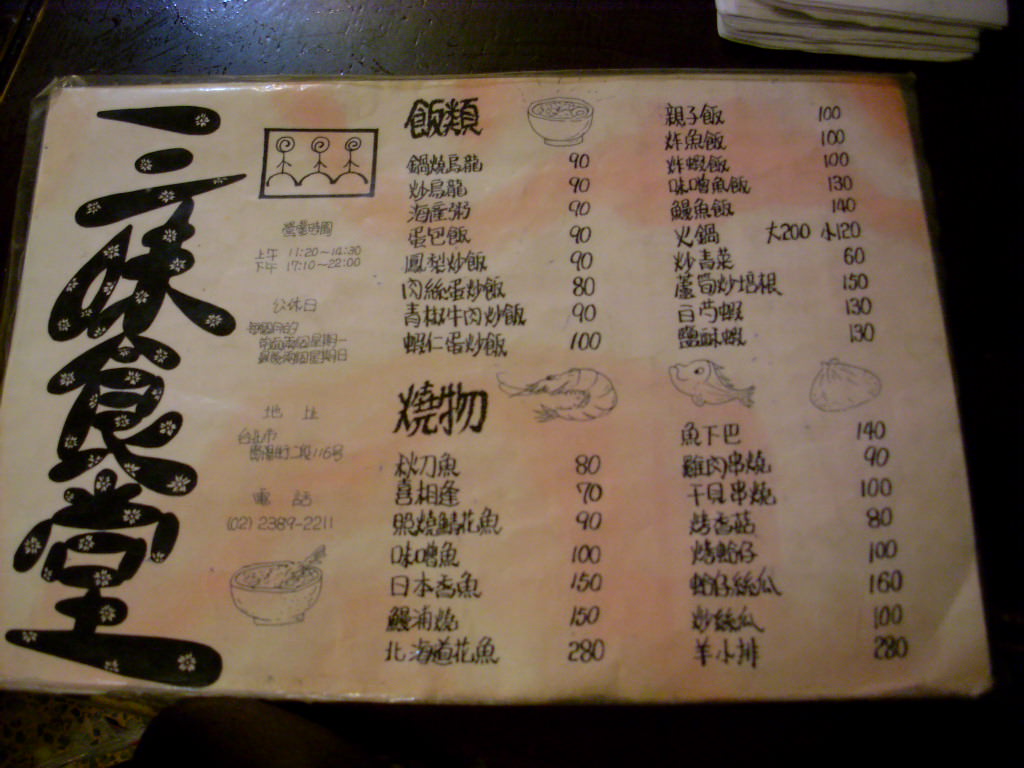 三味食堂
營業時間
上午 11:20~14:30
下午 17:10~22:00
公休日
每個月的
前面兩個星期一
最後兩個星期日
地 址
台北市
貴陽街二段116号
電 話
(02)2389-2211
飯類
鍋燒烏龍 90
炒烏龍 90
海產粥 90
蛋包飯 90
鳳梨炒飯 90
肉絲蛋炒飯 80
青椒牛肉炒飯 90
蝦仁蛋炒飯 100
親子飯 100
炸魚飯 100
炸蝦飯 100
味噌魚飯 130
鰻魚飯 140
火鍋 大200 小120
炒青菜 60
蘆筍炒培根 150
百芍蝦 130
鹽酥蝦 130
燒物
秋刀魚 80
喜相逢 70
照燒鯖花魚 90
味噌魚 100
日本香魚 150
鰻浦燒 150
北海道花魚 280
魚下巴 140
雞肉串燒 90
干貝串燒 100
烤香菇 80
烤蛤仔 100
蛤仔絲瓜 160
炒絲瓜 100
羊小排 280